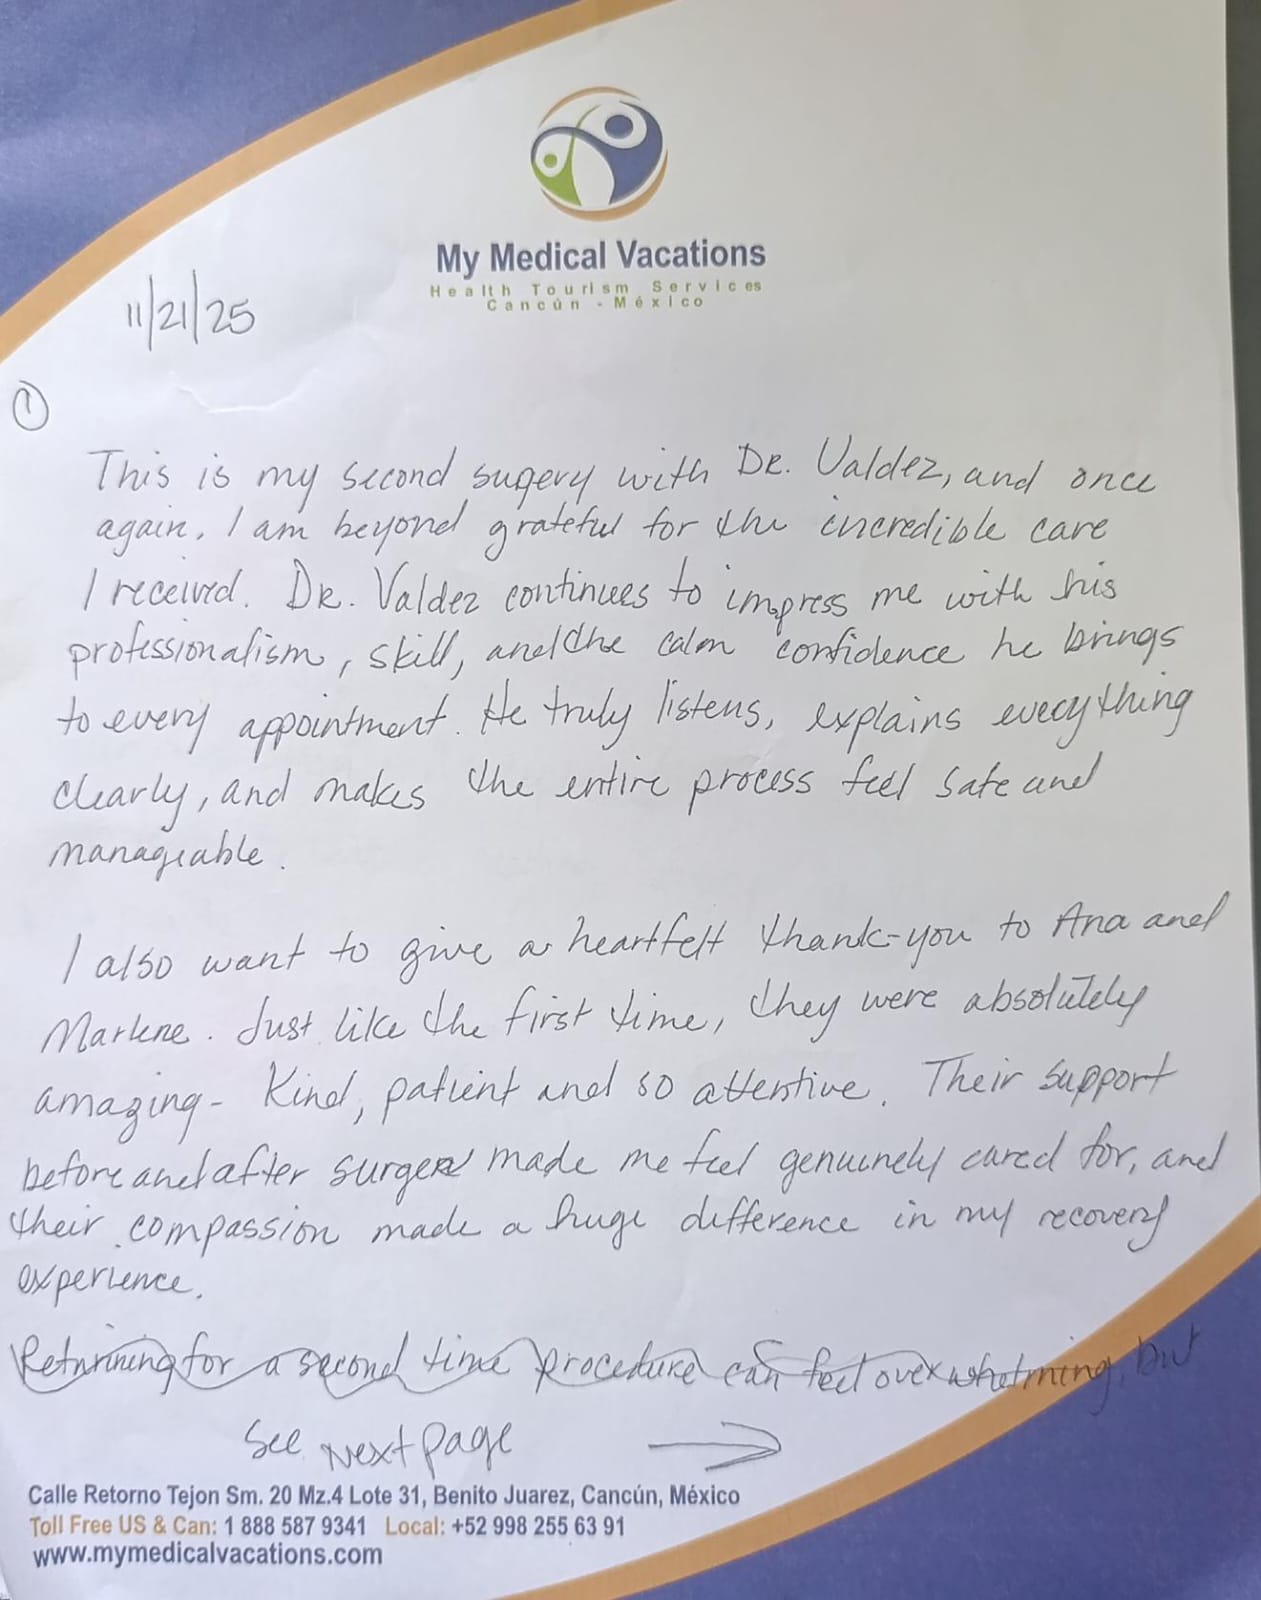 My Medical Vacations
Health Tourism Services
Cancún - México
11/21/25
1
This is my second sugery with Dr. Valdez, and once
again, I am beyond grateful for the incredible care
I received. Dr. Valdez continues to impress me with his
professionalism, skill, and the calm confidence he brings
to every appointment. He truly listens, explains everything
clearly, and makes the entire process feel safe and
manageable.
I also want to give a heartfelt thank-you to Ana and
Marlene. Just like the first time, they were absolutely
amazing - Kind, patient and so attentive. Their support
before and after surgery made me feel genuinely cared for, and
their compassion made a huge difference in my recovery
experience.
Returning for a second time procedure can feel overwhelming, but
See Next page
Calle Retorno Tejon Sm. 20 Mz.4 Lote 31, Benito Juarez, Cancún, México
Toll Free US & Can: 1 888 587 9341 Local: +52 998 255 63 91
www.mymedicalvacations.com